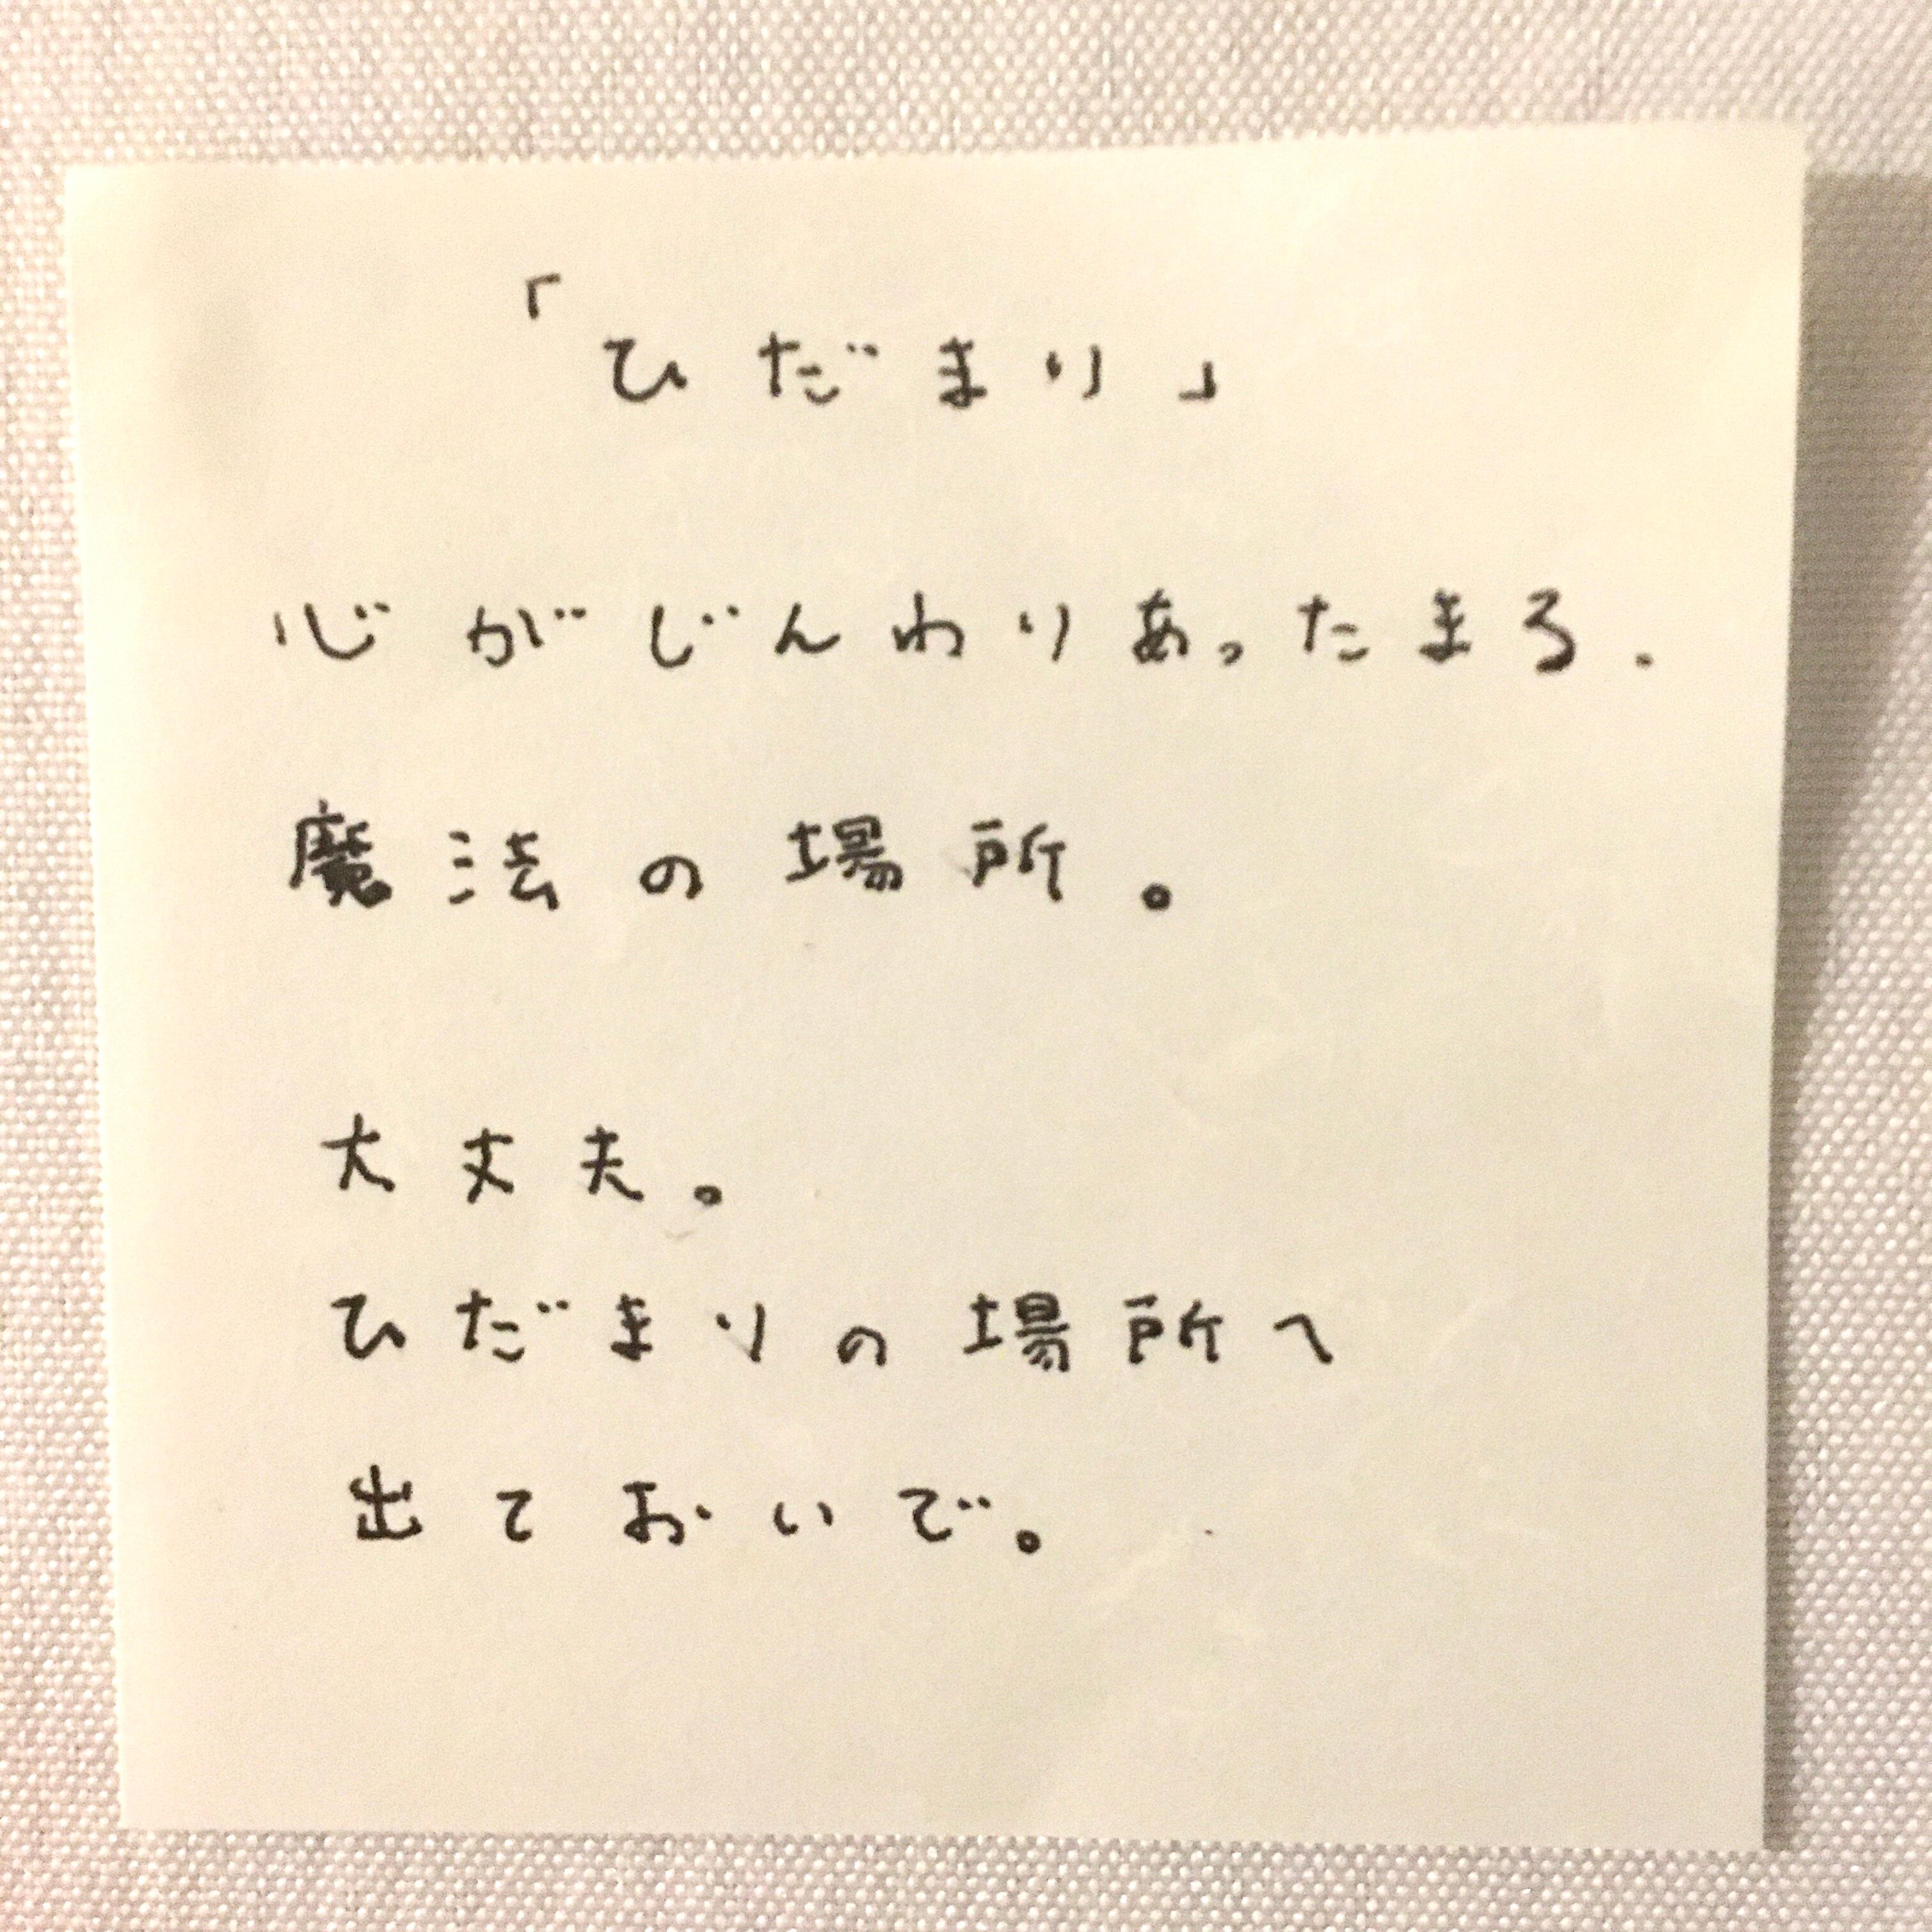 「ひだまり」
心がじんわりあったまる.
魔法の場所。
大丈夫。
ひだまりの場所へ
出ておいで。